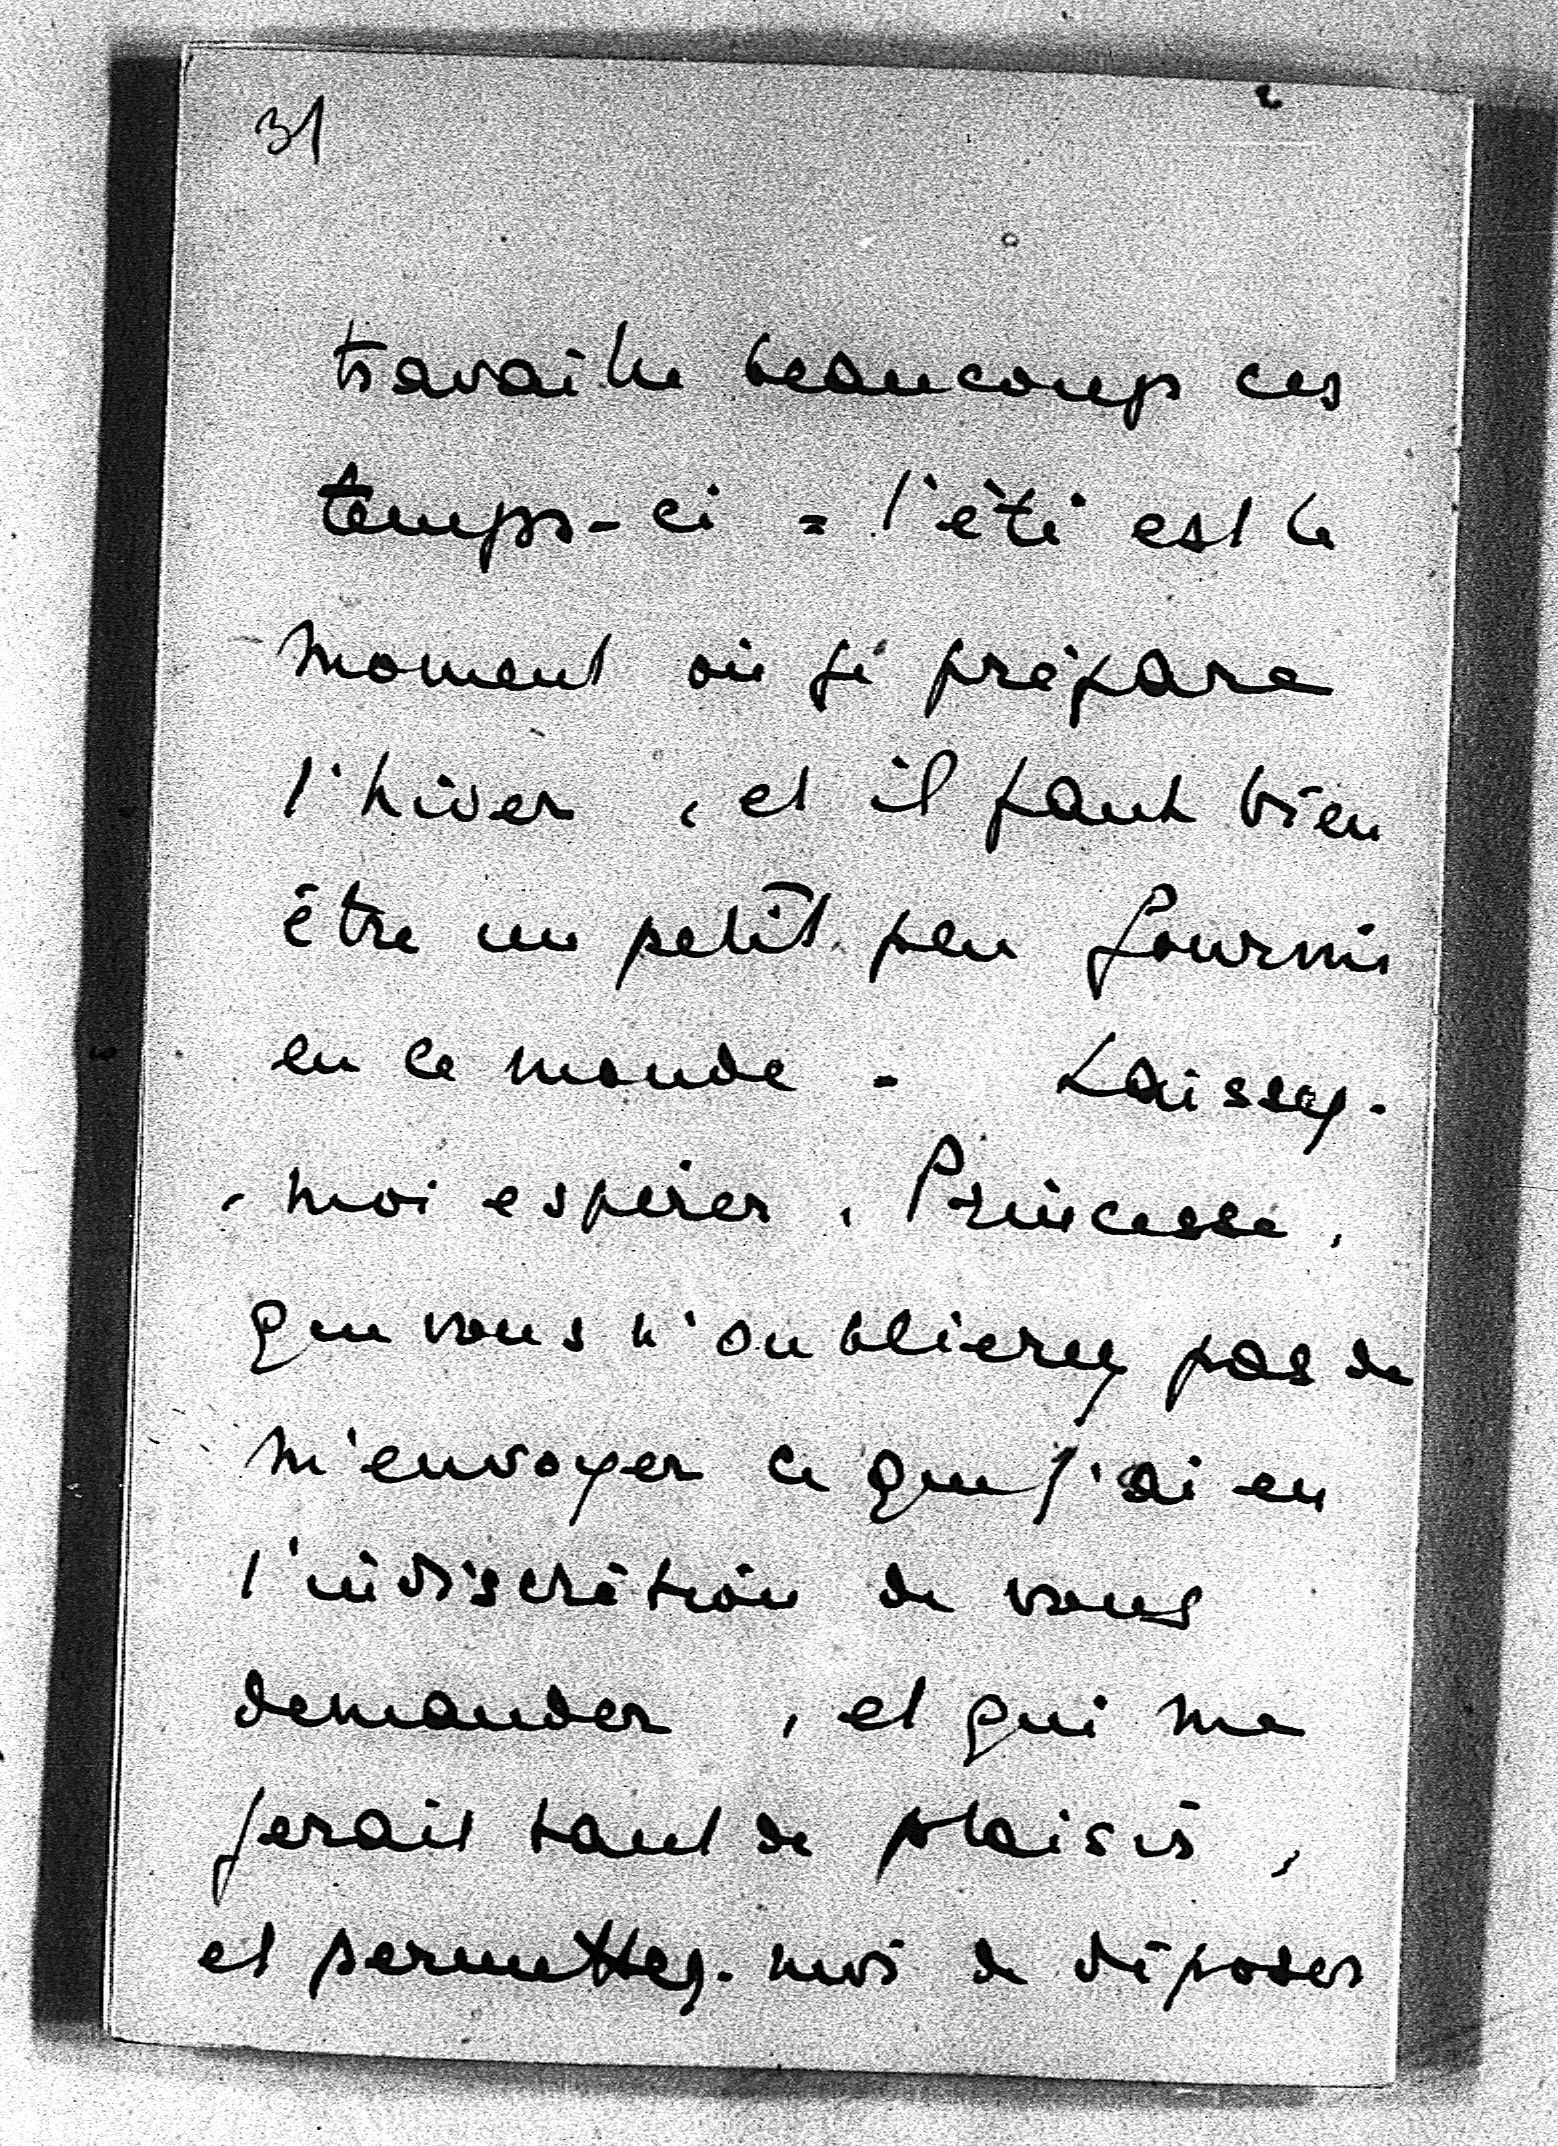 31
travaille beaucoup ces
temps-ci = l'été est le
moment où je prépare
l'hiver, et il faut bien
être un petit peu fourmi
en ce monde - Laissez-
- moi espérer, Princesse,
que vous n'oublierez pas de
m'envoyer ce que j'ai eu
l'indiscrétion de vous
demander, et qui me
ferait tant de plaisir,
et permettez-moi de déposer